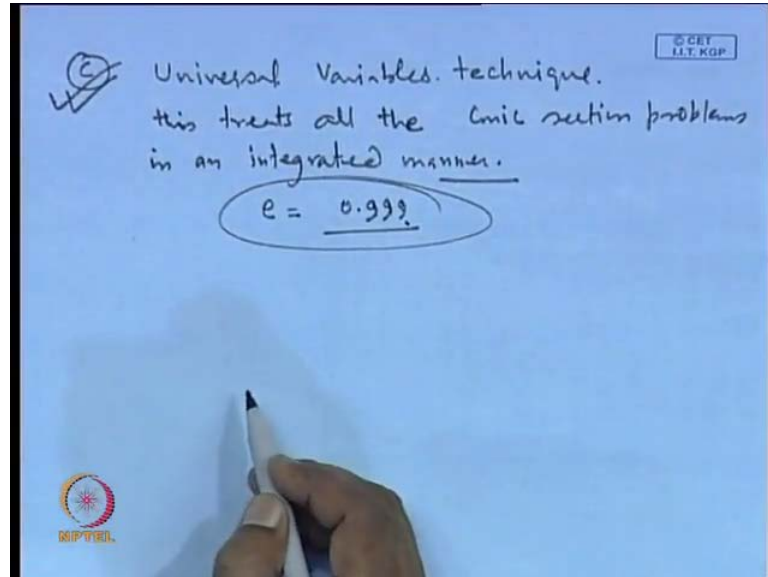 © CET
I.I.T. KGP
C Universal Variables. technique.
this treats all the Conic section problems
in an integrated manner.
e = 0.999
NPTEL